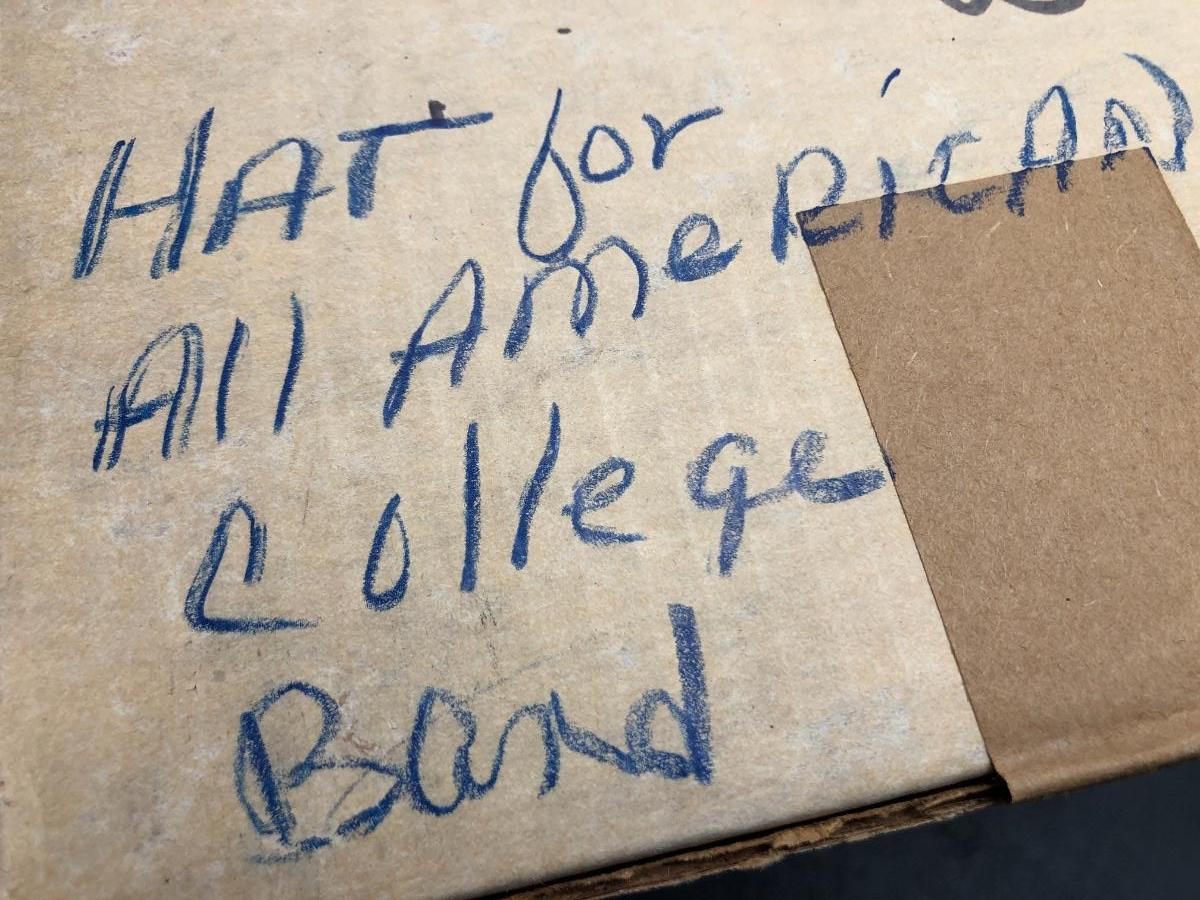 HAT for
All AmeRicAN
College
Band